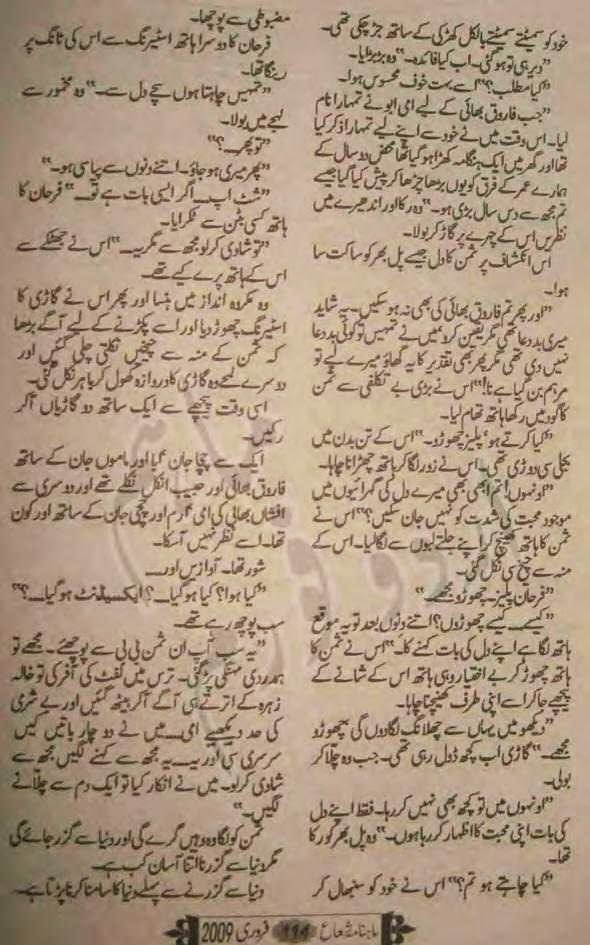 خود کو سمیٹتے سمیٹتے بالکل کھڑکی کے ساتھ جڑ چکی تھی۔
”دیر ہی تو ہو گئی۔ اب کیا فائدہ۔“ وہ بڑبڑایا۔
”کیا مطلب؟“ اسے بہت خوف محسوس ہوا۔
”جب فاروق بھائی کے لیے امی ابو نے تمہارا نام
لیا۔ اس وقت میں نے خود سے اپنے لیے تمہارا ذکر کیا
تھا اور گھر میں ایک ہنگامہ کھڑا ہو گیا تھا محض دو سال کے
ہمارے عمر کے فرق کو یوں بڑھا چڑھا کر پیش کیا گیا جیسے
تم مجھ سے دس سال بڑی ہو۔“ وہ رکا اور اندھیرے میں
نظریں اس کے چہرے پر گاڑ کر بولا۔
اس انکشاف پر ثمن کا دل جیسے پل بھر کو ساکت سا
ہوا۔
”اور پھر تم فاروق بھائی کی بھی نہ ہو سکیں۔ یہ شاید
میری بددعا تھی مگر یقین کرو میں نے تمہیں تو کوئی بددعا
نہیں دی تھی مگر پھر بھی تقدیر کا یہ گھاؤ میرے لیے تو
مرہم بن گیا ہے نا!“ اس نے بڑی بے تکلفی سے ثمن
کا گود میں رکھا ہاتھ تھام لیا۔
”کیا کرتے ہو‘ پلیز چھوڑو۔“ اس کے تن بدن میں
بجلی سی دوڑی تھی۔ اس نے زور لگا کر ہاتھ چھڑانا چاہا۔
”اونہوں! تم ابھی بھی میرے دل کی گہرائیوں میں
موجود محبت کی شدت کو نہیں جان سکیں؟“ اس نے
ثمن کا ہاتھ کھینچ کر اپنے جلتے لبوں سے لگا لیا۔ اس کے
منہ سے چیخ سی نکل گئی۔
”فرحان پلیز۔ چھوڑو مجھے۔“
”کیسے۔ کیسے چھوڑوں؟ اتنے دنوں بعد تو یہ موقع
ہاتھ لگا ہے اپنے دل کی بات کہنے کا۔“ اس نے ثمن کا
ہاتھ چھوڑ کر بے اختیار وہی ہاتھ اس کے شانے کے
پیچھے جا کر اسے اپنی طرف کھینچنا چاہا۔
”دیکھو میں یہاں سے چھلانگ لگا دوں گی چھوڑو
مجھے۔“ گاڑی اب کچھ ڈول رہی تھی۔ جب وہ چلا کر
بولی۔
”اونہوں میں تو کچھ بھی نہیں کر رہا۔ فقط اپنے دل
کی بات اپنی محبت کا اظہار کر رہا ہوں۔“ وہ پل بھر کو رکا
تھا۔
”کیا چاہتے ہو تم؟“ اس نے خود کو سنبھال کر
مضبوطی سے پوچھا۔
فرحان کا دوسرا ہاتھ اسٹیرنگ سے اس کی ٹانگ پر
رینگا تھا۔
”تمہیں چاہتا ہوں سچے دل سے۔“ وہ مخمور سے
لہجے میں بولا۔
”تو پھر۔؟“
”پھر میری ہو جاؤ۔ اتنے دنوں سے پیاسی ہو۔“
”شٹ اپ۔ اگر ایسی بات ہے تو۔“ فرحان کا
ہاتھ کسی بٹن سے ٹکرایا۔
”تو شادی کر لو مجھ سے مگر یہ۔“ اس نے جھٹکے سے
اس کے ہاتھ پرے کیے تھے۔
وہ مکروہ انداز میں ہنسا اور پھر اس نے گاڑی کا
اسٹیرنگ چھوڑ دیا اور اسے پکڑنے کے لیے آگے بڑھا
کہ ثمن کے منہ سے چیخیں نکلتی چلی گئیں اور
دوسرے لمحے وہ گاڑی کا دروازہ کھول کر باہر نکل گئی۔
اسی وقت پیچھے سے ایک ساتھ دو گاڑیاں آ کر
رکیں۔
ایک سے چچا جان عمبا اور ماموں جان کے ساتھ
فاروق بھائی اور حبیب انکل نکلے تھے اور دوسری سے
افشاں بھابی کی امی مریم اور چچی جان کے ساتھ اور کون
تھا۔ اسے نظر نہیں آ سکا۔
شور تھا۔ آوازیں اور۔
”کیا ہوا؟ کیا ہو گیا۔؟ ایکسیڈنٹ ہو گیا۔؟“
سب پوچھ رہے تھے۔
”یہ سب آپ ان ثمن بی بی سے پوچھئے۔ مجھے تو
ہمدردی مہنگی پڑ گئی۔ ترس میں لفٹ کی آفر کی تو خالہ
زہرہ کے اترتے ہی آگے آ کر بیٹھ گئیں اور بے شرمی
کی حد دیکھیے امی۔ میں نے دو چار باتیں کیں
سرسری سی اور یہ۔ یہ مجھ سے کہنے لگیں مجھ سے
شادی کر لو۔ میں نے انکار کیا تو ایک دم سے چلانے
لگیں۔“
ثمن کو لگا وہ وہیں گرے گی اور دنیا سے گزر جائے گی
مگر دنیا سے گزرنا اتنا آسان کب ہے۔
دنیا سے گزرنے سے پہلے دنیا کا سامنا کرنا پڑتا ہے۔
ماہنامہ شعاع 114 فروری 2009